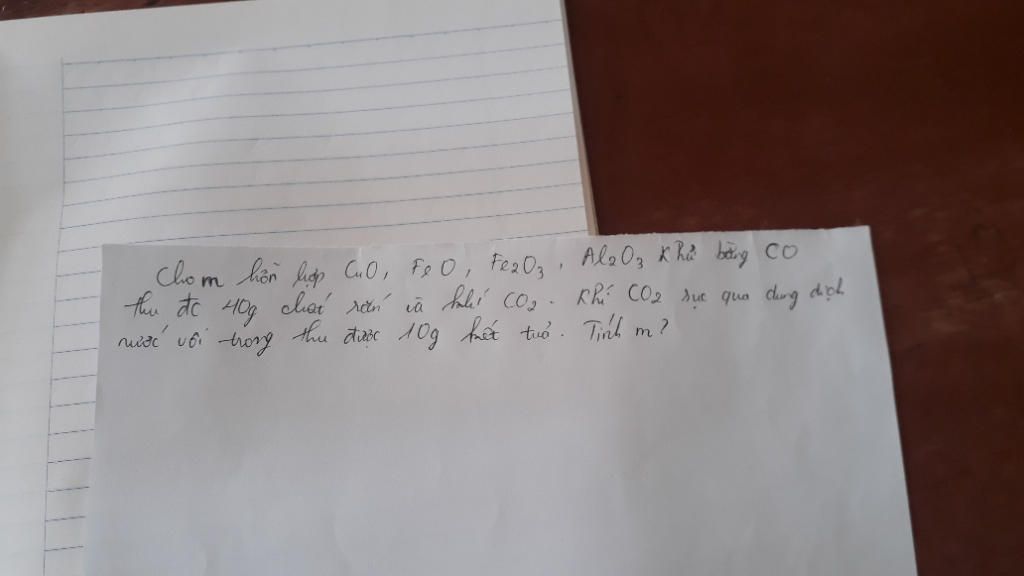 Cho m hỗn hợp CuO, FeO, Fe2O3, Al2O3 khử bằng CO
thu đc 40g chất rắn và khí CO2. Khí CO2 sục qua dung dịch
nước vôi trong thu được 10g kết tuả. Tính m?